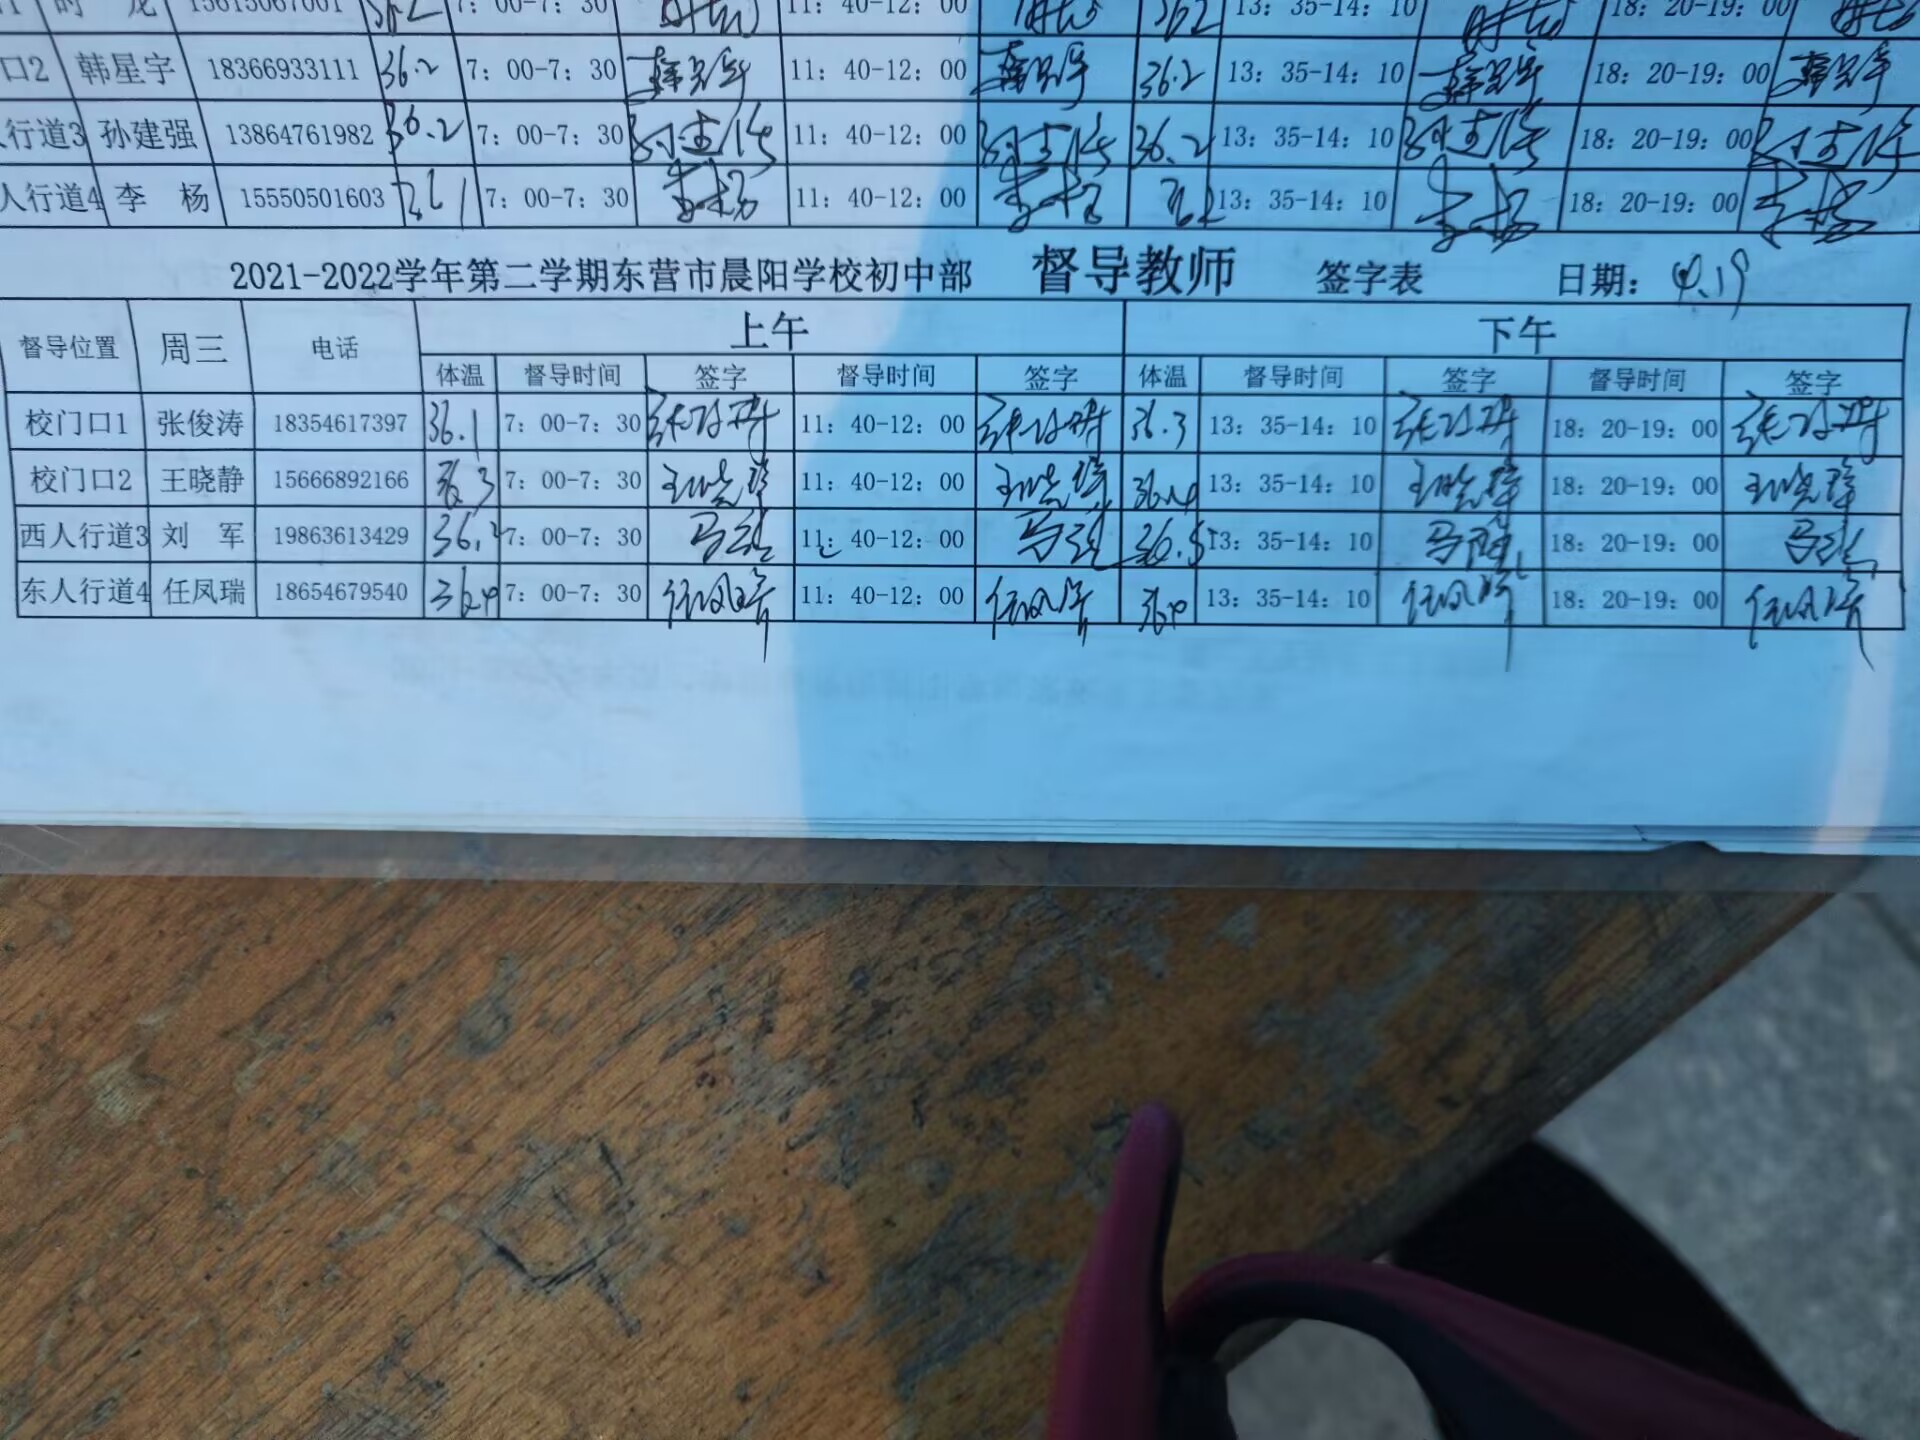 时 龙 15615067001 36.2 7：00-7：30 11：40-12：00 36.2 13：35-14：10 18：20-19：00
口2 韩星宇 18366933111 36.2 7：00-7：30 韩星宇 11：40-12：00 韩星宇 36.2 13：35-14：10 韩星宇 18：20-19：00 韩星宇
人行道3 孙建强 13864761982 36.2 7：00-7：30 孙建强 11：40-12：00 孙建强 36.2 13：35-14：10 孙建强 18：20-19：00 孙建强
人行道4 李 杨 15550501603 36.1 7：00-7：30 李杨 11：40-12：00 李杨 36.2 13：35-14：10 李杨 18：20-19：00 李杨
2021-2022学年第二学期东营市晨阳学校初中部 督导教师 签字表 日期：4.19
督导位置 周三 电话 上午 下午
体温 督导时间 签字 督导时间 签字 体温 督导时间 签字 督导时间 签字
校门口1 张俊涛 18354617397 36.1 7：00-7：30 张俊涛 11：40-12：00 张俊涛 36.3 13：35-14：10 张俊涛 18：20-19：00 张俊涛
校门口2 王晓静 15666892166 36.3 7：00-7：30 王晓静 11：40-12：00 王晓静 36.4 13：35-14：10 王晓静 18：20-19：00 王晓静
西人行道3 刘 军 19863613429 36.2 7：00-7：30 11：40-12：00 36.5 13：35-14：10 18：20-19：00
东人行道4 任凤瑞 18654679540 36.4 7：00-7：30 任凤瑞 11：40-12：00 任凤瑞 36.4 13：35-14：10 任凤瑞 18：20-19：00 任凤瑞